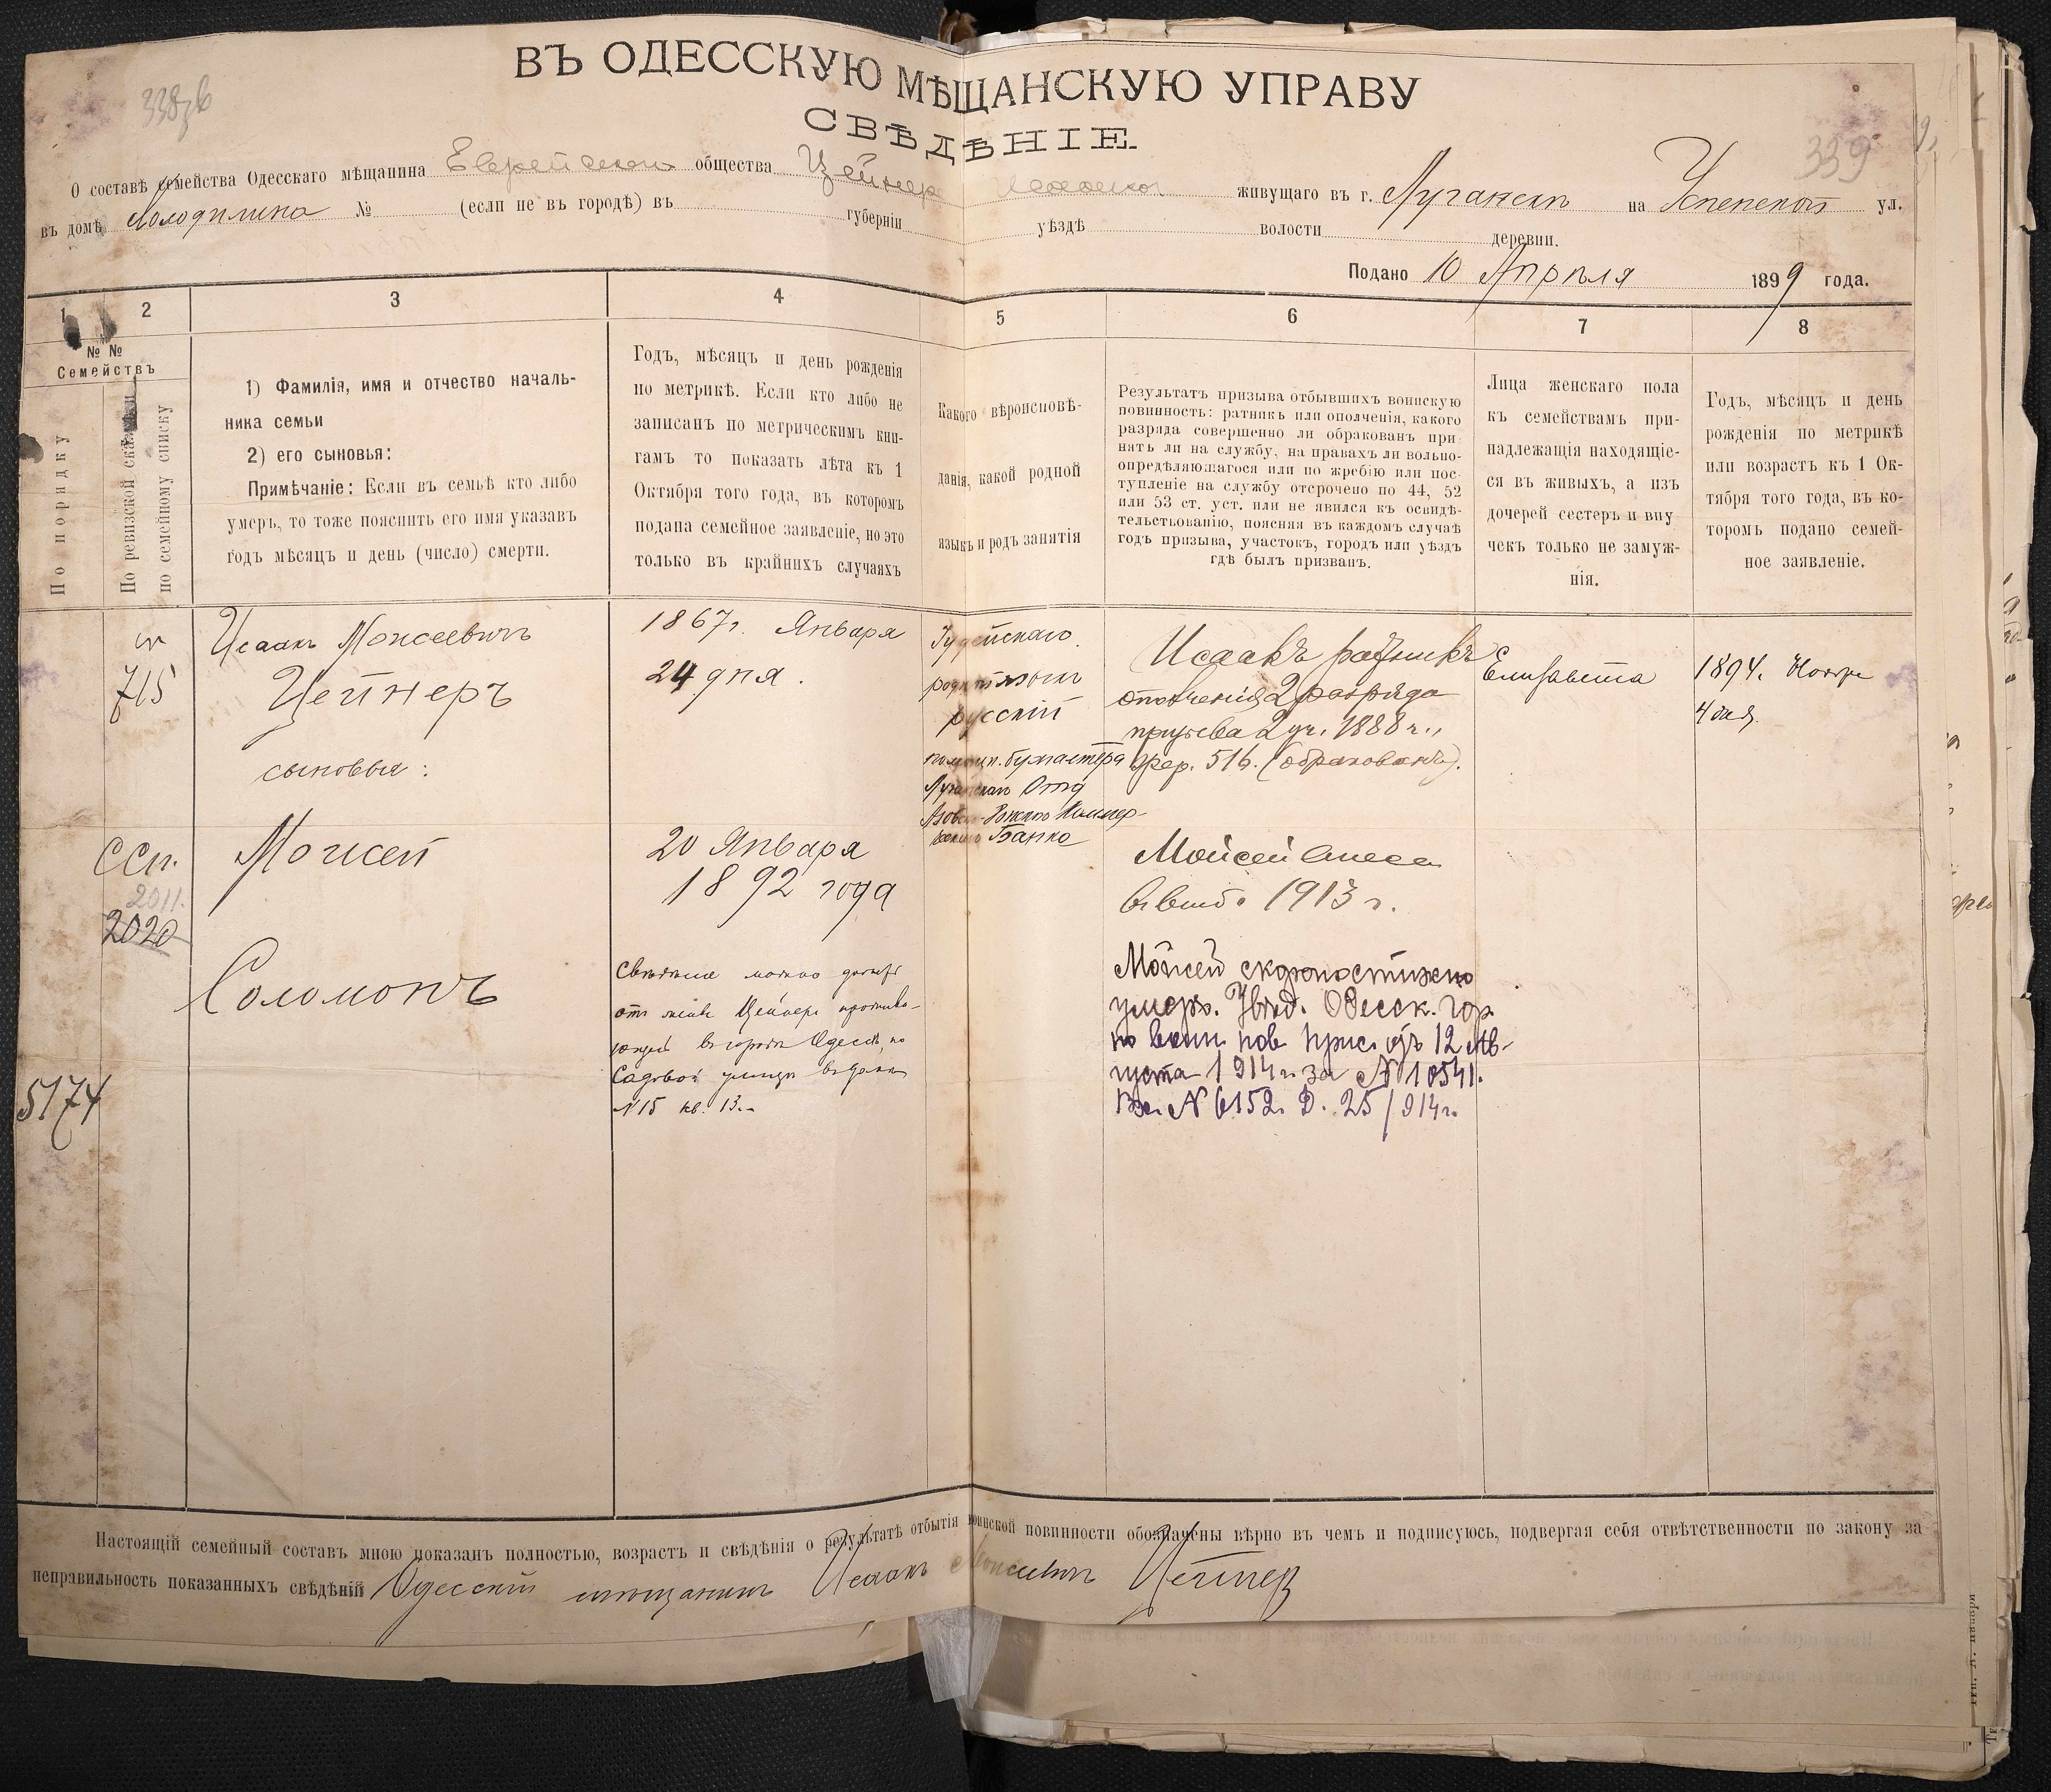 ВЪ ОДЕССКУЮ МѢЩАНСКУЮ УПРАВУ
СВѢДѢНІЕ.
339
О составѣ семейства Одесскаго мѣщанина Еврейскаго общества Цейнер Исаака живущаго въ г. Луганскѣ на Успенской ул.
въ домѣ № (если не въ городѣ) въ губерніи уѣздѣ волости деревни.
Подано 10 Апрѣля 1899 года.
1 2 3 4 5 6 7 8
№ №
Семействъ
По порядку
По ревизской сказки
по семейному списку
1) Фамилія, имя и отчество началь-
ника семьи
2) его сыновья:
Примѣчаніе: Если въ семьѣ кто либо
умеръ, то тоже пояснить его имя указавъ
годъ мѣсяцъ и день (число) смерти.
Годъ, мѣсяцъ и день рожденія
по метрикѣ. Если кто либо не
записанъ по метрическимъ кни-
гамъ то показать лѣта къ 1
Октября того года, въ которомъ
подана семейное заявленіе, но это
только въ крайнихъ случаяхъ
Какого вѣроисповѣ-
данія, какой родной
языкъ и родъ занятія
Результатъ призыва отбывшихъ воинскую
повинность: ратникъ или ополченія, какого
разряда совершенно ли обракованъ при-
нятъ ли на службу, на правахъ ли вольно-
опредѣляющагося или по жребію или пос-
тупленіе на службу отсрочено по 44, 52
или 53 ст. уст. или не явился къ освидѣ-
тельствованію, поясняя въ каждомъ случаѣ
годъ призыва, участокъ, городъ или уѣздъ
гдѣ былъ призванъ.
Лица женскаго пола
къ семействамъ при-
надлежащія находящіе-
ся въ живыхъ, а изъ
дочерей сестеръ и вну
чекъ только не замуж-
нія.
Годъ, мѣсяцъ и день
рожденія по метрикѣ
или возрастъ къ 1 Ок-
тября того года, въ ко-
торомъ подано семей-
ное заявленіе.
715
Исаакъ Моисеевичъ
Цейнеръ
сыновья:
1867г. Января
24 дня.
Іудейскаго
родн. языкъ
русскій
помощн. бухгалтера
Луганскаго Отд
Азовско-Донского Коммер-
ческаго Банка
Исаакъ ратникъ
ополченія 2 разряда
призыва 2 уч. 1888 г.,
жер. 516. (обракованъ).
Елизавета
1894. Ноября
4 дня.
ССп.
2011.
2020
Моисей
20 Января
1892 года
Мойсей внесенъ
1913 г.
Соломонъ
Свѣдѣнія можно
отъ Цейнера прожива-
ющей въ городѣ Одессѣ, по
Садовой улицѣ въ домѣ
№ 15 кв. 13.
Мойсей скоропостижно
умеръ. Увѣд. Одесск. гор.
по воин. пов. прис. отъ 12 Ав-
густа 1914 г. за № 10541.
Вх. № 6152. Д. 25/914г.
5174
Настоящій семейный составъ мною показанъ полностью, возрастъ и свѣдѣнія о результатѣ отбытія воинской повинности обозначены вѣрно въ чемъ и подписуюсь, подвергая себя отвѣтственности по закону за
неправильность показанныхъ свѣдѣній Одесскій мѣщанинъ Исаакъ Моисеевичъ Цейнеръ